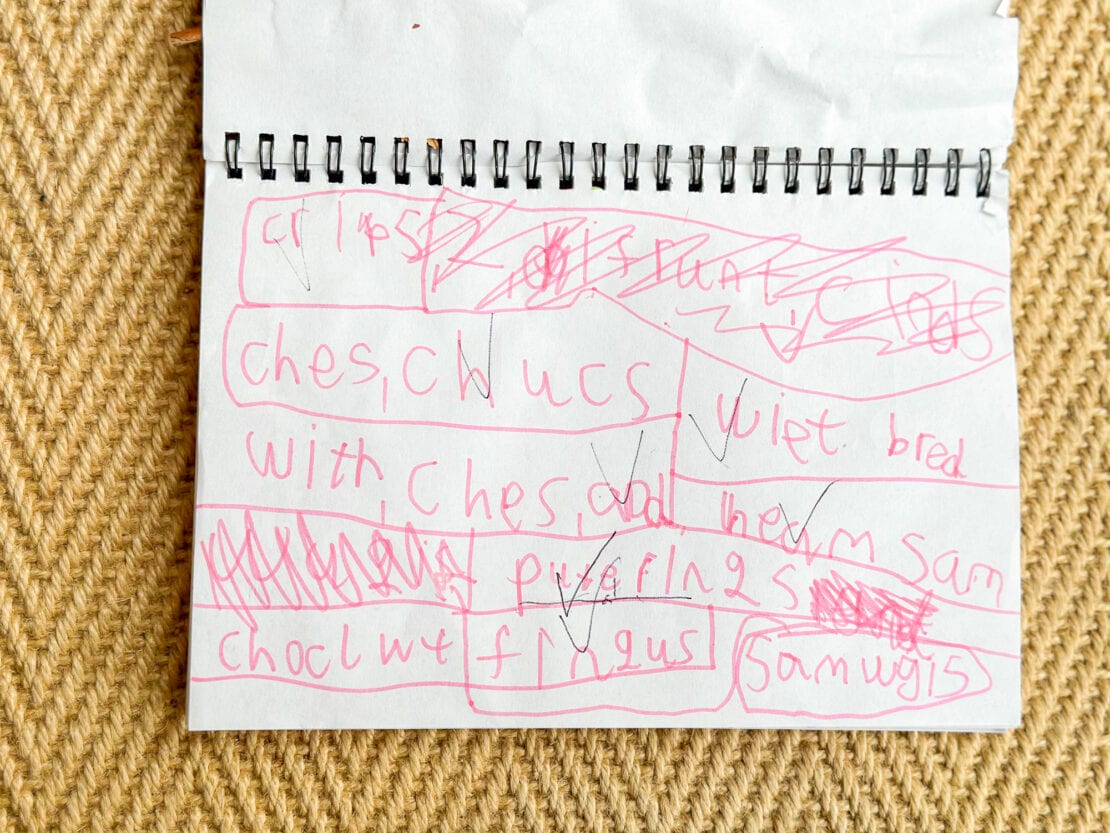 crips 2 difrunt cinds
ches, chucs
wiet bred
with, ches, and
heam sam
puserings
choclwt fingus samwgis